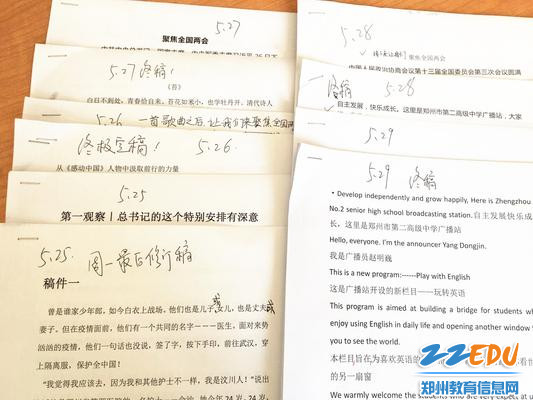 5.27
聚焦全国两会
5.27终稿!
《苔》
白日不到处,青春恰自来。苔花如米小,也学牡丹开。清代诗人
5.26
一首歌曲之后,让我们来聚焦全国两
终极定稿!
5.26.
从《感动中国》人物中汲取前行的力量
5.25
第一观察丨总书记的这个特别安排有深意
5.25.
周一最后修订稿
稿件一
曾是谁家少年郎,如今白衣上战场。他们也是儿子或女儿,也是丈夫或
妻子。但在疫情面前,他们有一个共同的名字---医生,面对来势
汹汹的疫情,他们一句话也没说,签了字,按下手印,前往武汉,穿
上隔离服,保护全中国!
“我觉得我应该去,因为我和其他护士不一样,我是汶川人!”说出
5.28
聚焦全国两会
中国人民政治协商会议第十三届全国委员会第三次会议圆满
终稿
5.28
自主发展,快乐成长,这里是郑州市第二高级中学广播站,大家
5.29
5.29 终稿
• Develop independently and grow happily, Here is Zhengzhou
No.2 senior high school broadcasting station.自主发展快乐成
长,这里是郑州市第二高级中学广播站
Hello, everyone. I'm the announcer Yang Dongjin.
我是广播员赵明巍
This is a new program:------Play with English
这是广播站开设的新栏目——玩转英语
This program is aimed at building a bridge for students wh
enjoy using English in daily life and opening another window
you to see the world.
本栏目旨在为喜欢英语的
的另一扇窗
We warmly welcome the students who are very expert at u
22EDU
郑州教育信息网